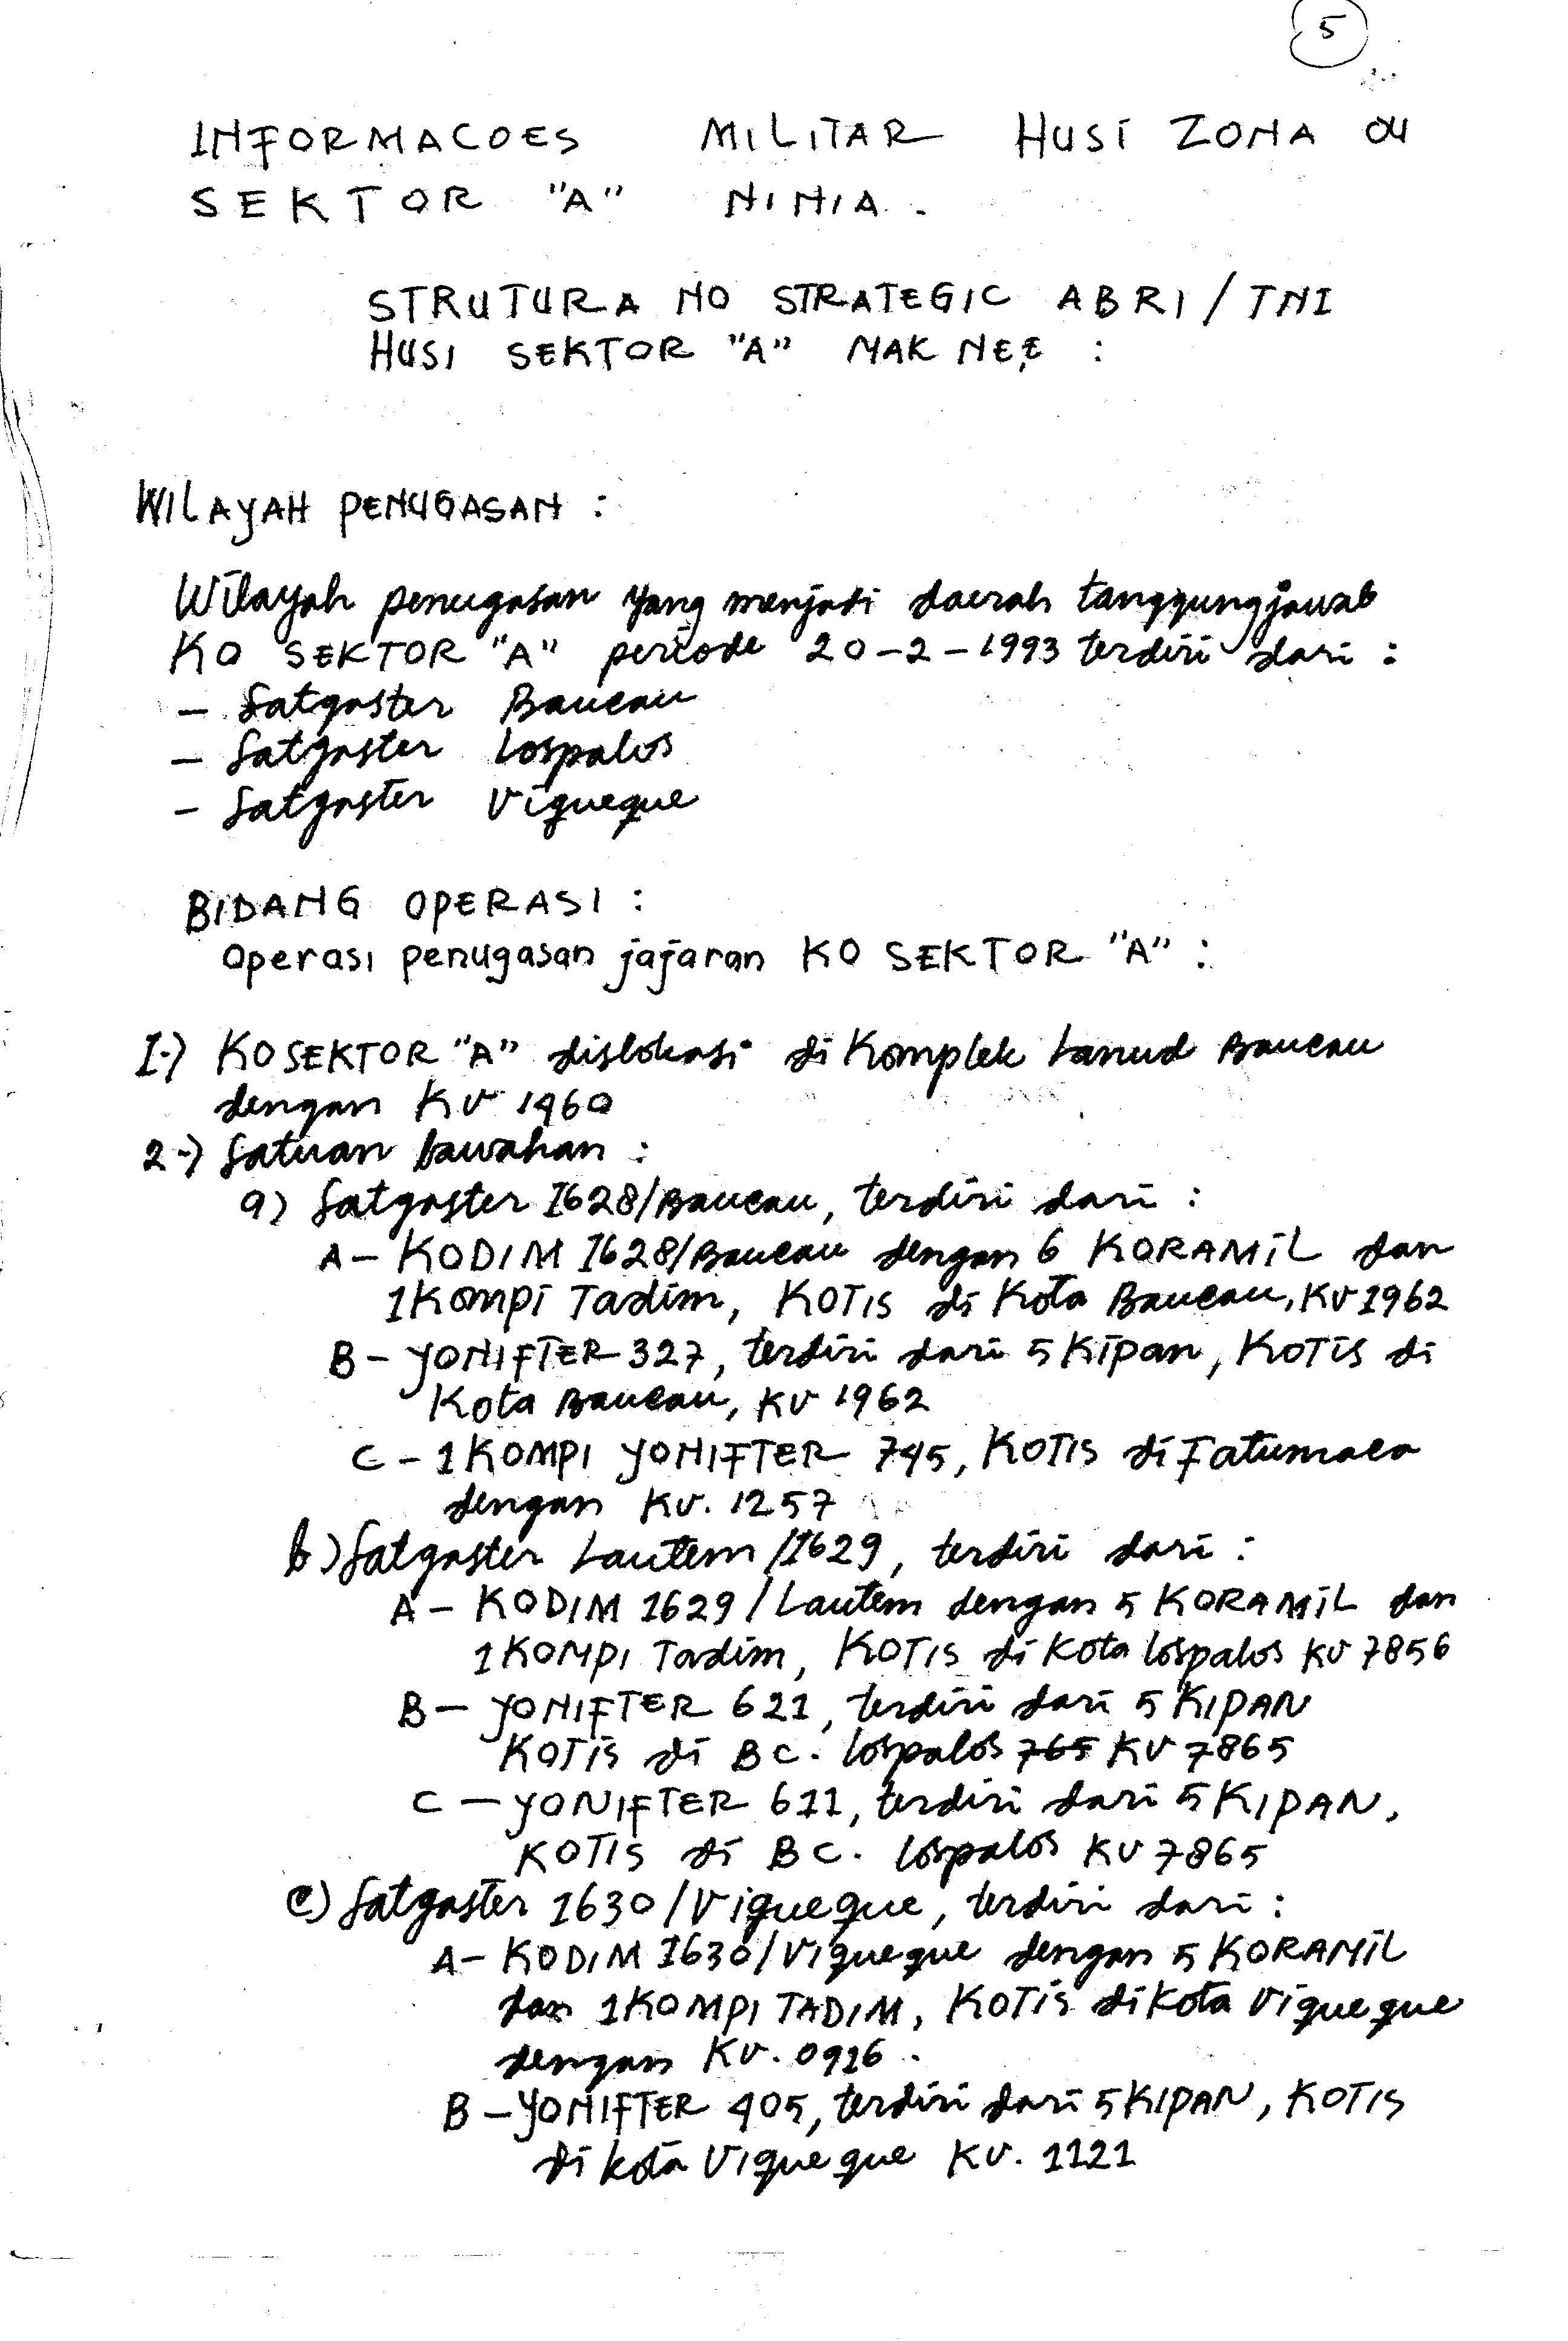 5
INFORMACOES MILITAR HUSI ZONA 04
SEKTOR "A" NINIA.
STRUTURA NO STRATEGIC ABRI/TNI
HUSI SEKTOR "A" MAK NEE :
WILAYAH PENUGASAN :
Wilayah penugasan yang menjadi daerah tanggungjawab
KO SEKTOR "A" periode 20-2-1993 terdiri dari :
- Satgaster Baucau
- Satgaster Lospalos
- Satgaster Viqueque
BIDANG OPERASI :
Operasi penugasan jajaran KO SEKTOR "A" :
I-) KOSEKTOR "A" dislokasi di Komplek Lanud Baucau
dengan KV 1960
2-) Satuan bawahan :
a) Satgaster I628/Baucau, terdiri dari :
A- KODIM I628/Baucau dengan 6 KORAMIL dan
1 Kompi Tadim, KOTIS di Kota Baucau, KV 1962
B- YONIFTER 327, terdiri dari 5 Kipan, KOTIS di
Kota Baucau, KV 1962
C- 1 KOMPI YONIFTER 745, KOTIS di Fatumaca
dengan KV. 1257
b) Satgaster Lautem/I629, terdiri dari :
A- KODIM 1629/Lautem dengan 5 KORAMIL dan
1 KOMPI Tadim, KOTIS di Kota Lospalos KV 7856
B- YONIFTER 621, terdiri dari 5 KIPAN
KOTIS di BC. Lospalos 765 KV 7865
C- YONIFTER 611, terdiri dari 5 KIPAN,
KOTIS di BC. Lospalos KV 7865
c) Satgaster 1630/Viqueque, terdiri dari :
A- KODIM I630/Viqueque dengan 5 KORAMIL
dan 1 KOMPI TADIM, KOTIS di Kota Viqueque
dengan KV. 0926.
B- YONIFTER 405, terdiri dari 5 KIPAN, KOTIS
di kota Viqueque KV. 1121